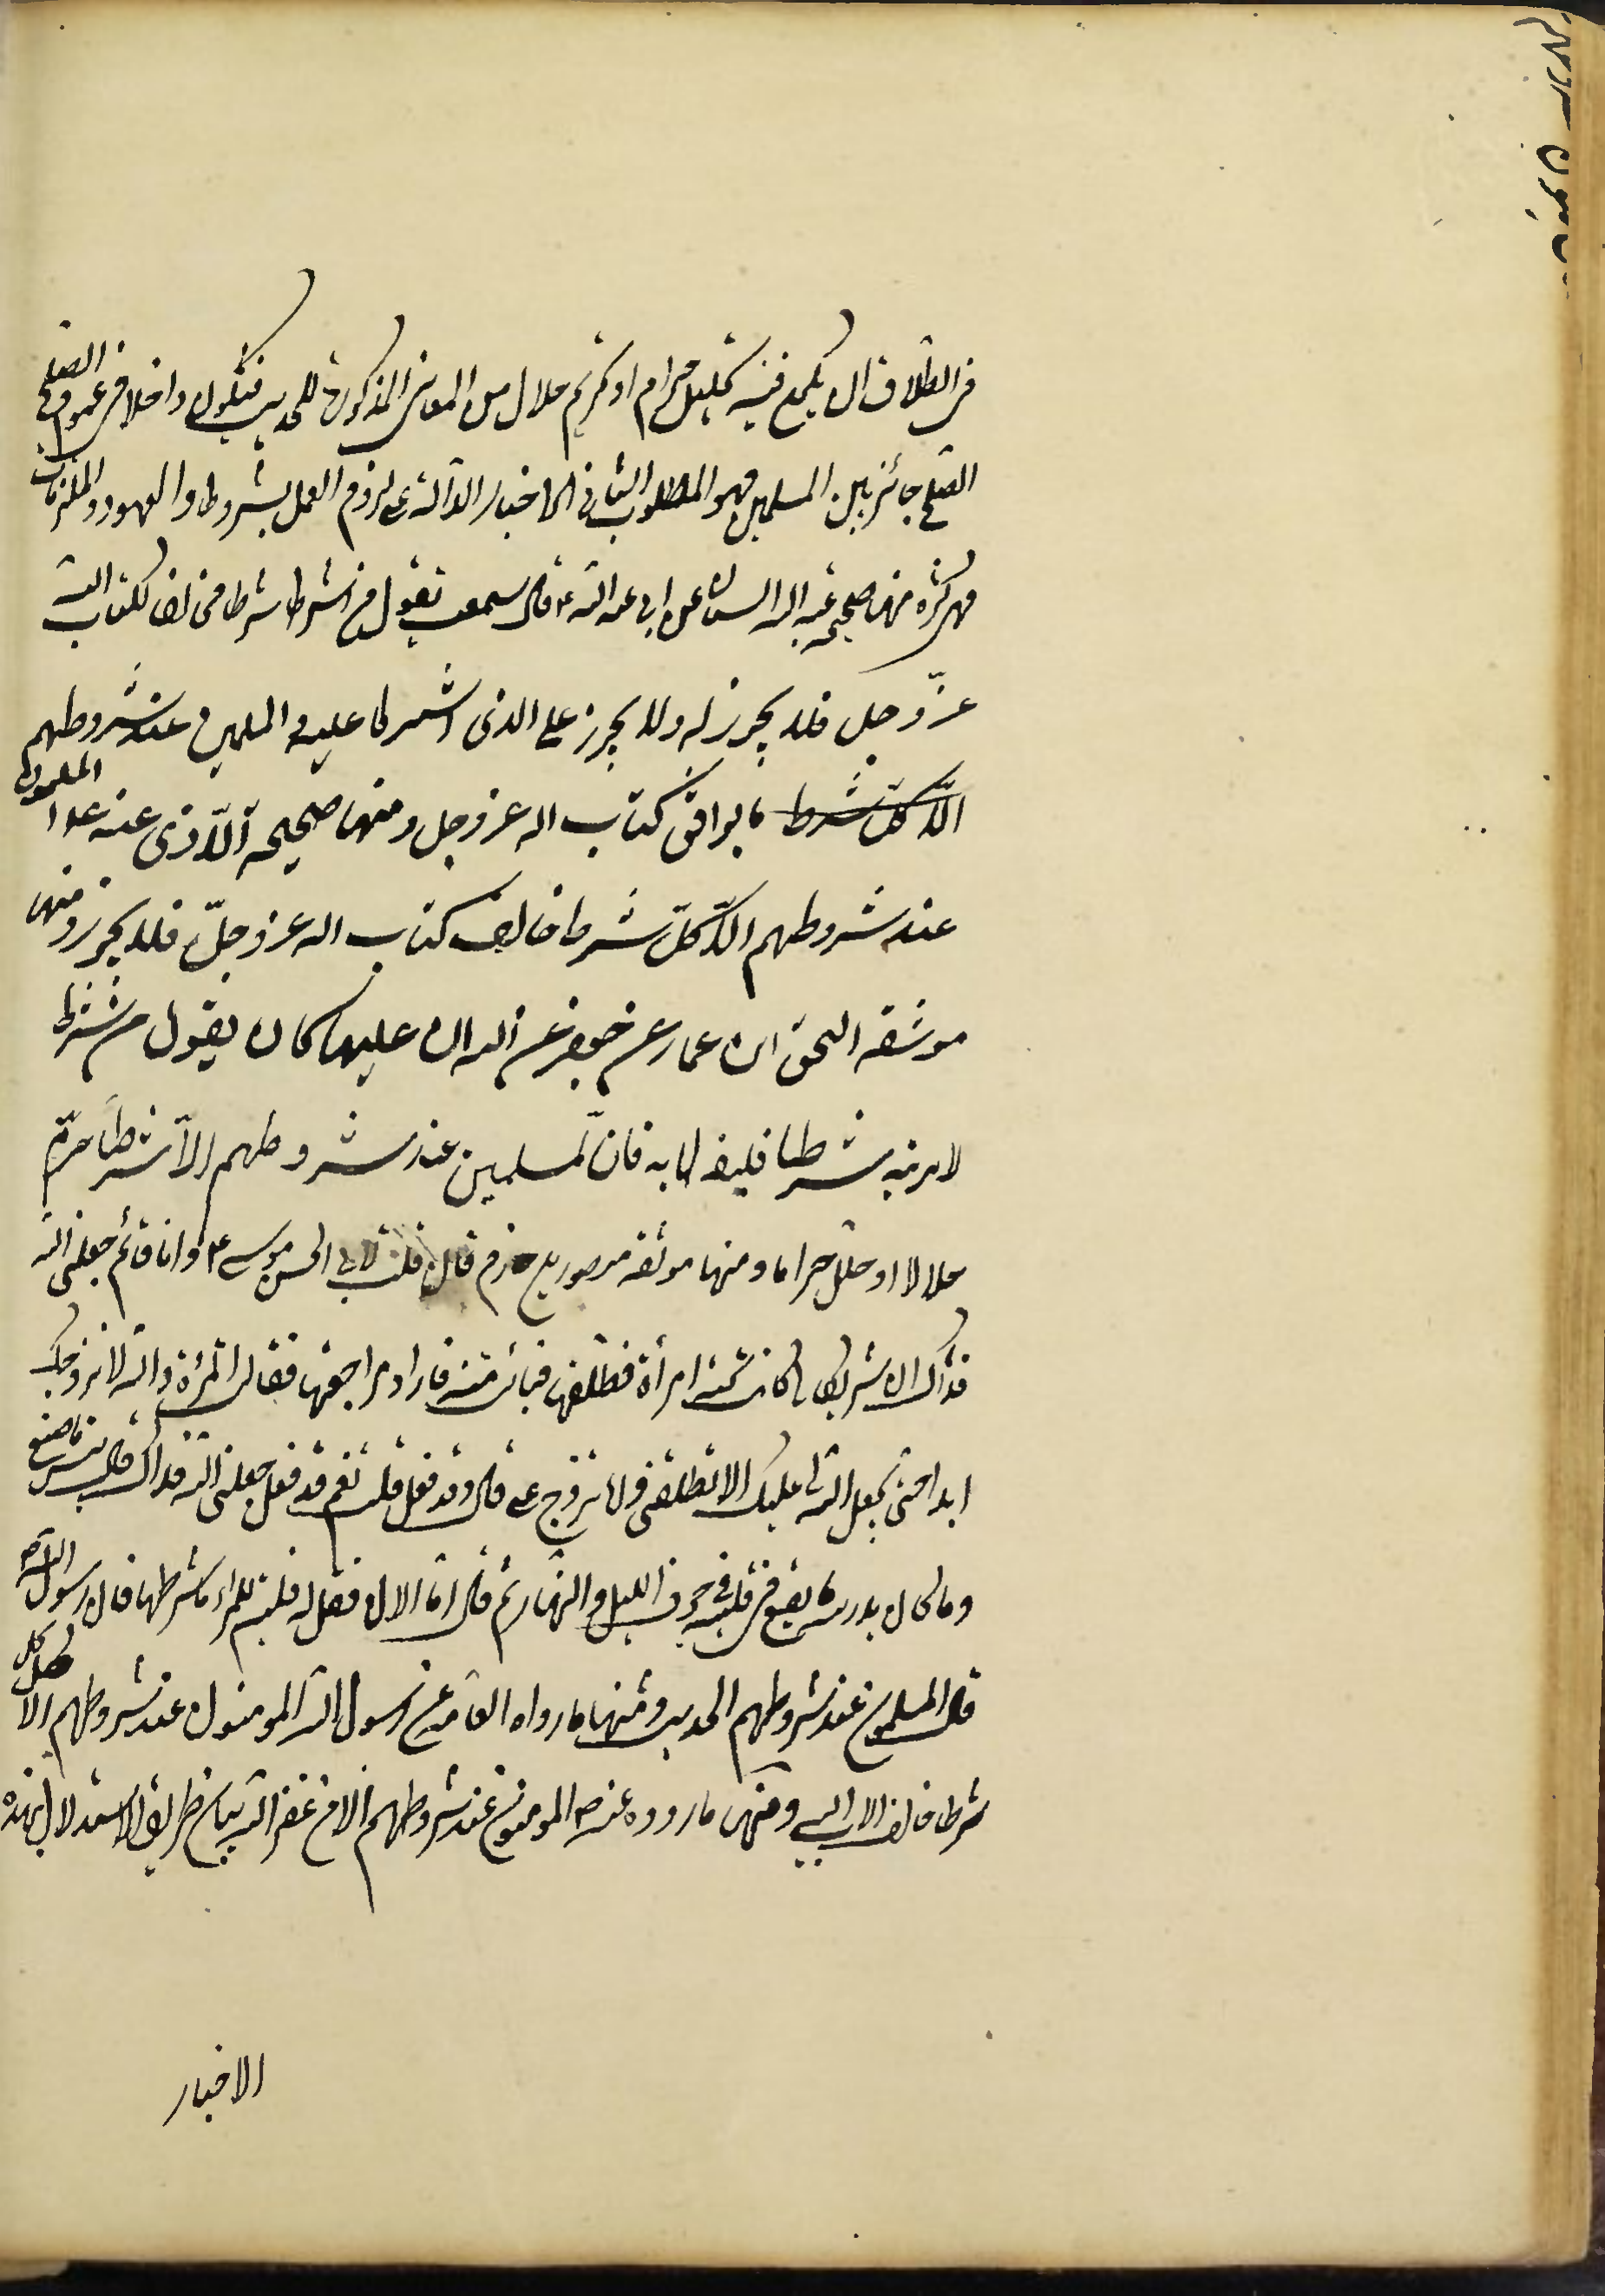 في الطلاق ان يجمع فيه تحليل حرام او تحريم حلال من المعاني المذكورة للحديث فيكون داخلا في عموم الصلح
الصلح جائز بين المسلمين فهو المطلوب الثاني الاخبار الدالة على لزوم العمل بشروط والعهود والملتزمات
وهي كثيرة منها صحيحة عبد الله السنان عن ابي عبد الله ع قال سمعت يقول من اشترط شرطا مخالف لكتاب الله
عزّ وجل فلا يجوز له ولا يجوز على الذي اشترط عليه والمسلمين عند شروطهم
الّا كلّ شرط ما يوافق كتاب الله عز وجل ومنها صحيحة الآخرى عنه ع المسلمون
عند شروطهم الّا كلّ شرط خالف كتاب الله عز وجلّ فلا يجوز ومنها
موثقه اسحق ابن عمار عن جعفر عن عليهما كان يقول من شرط
لامرئه شرطا فليف لها به فانّ المسلمين عند شروطهم الّا شرطاً حرّم
حلالا او حلل حراما ومنها موثقه منصور بن حازم قال قلت لابي الحسن موسى ع وانا قائم جعلني الله
فداك ان شريكا كانت تحته امرأة فطلقها فبانت منه فاراد مراجعتها فقالت المرئة والله لا تزوجك
ابدا حتى تجعل الله لي عليك الا تطلقني ولا تزوج علي قال وقد فعل قلت نعم قد فعل جعلني الله فداك قال بئس ما صنع
وما كان يدريه ما يقع في قلبه في جوف الليل والنهار ثم قال امّا الان فقل له فليتم للمراة شرطها فان رسول الله ص
قال المسلمون عند شروطهم الحديث ومنها ما رواه العامة عن رسول الله المومنون عند شروطهم الا كل
شرط خالف ومنها ما رووه عنه ص المومنون عند شروطهم الا من بيان طريق الاستدلال بهذه
الاخبار